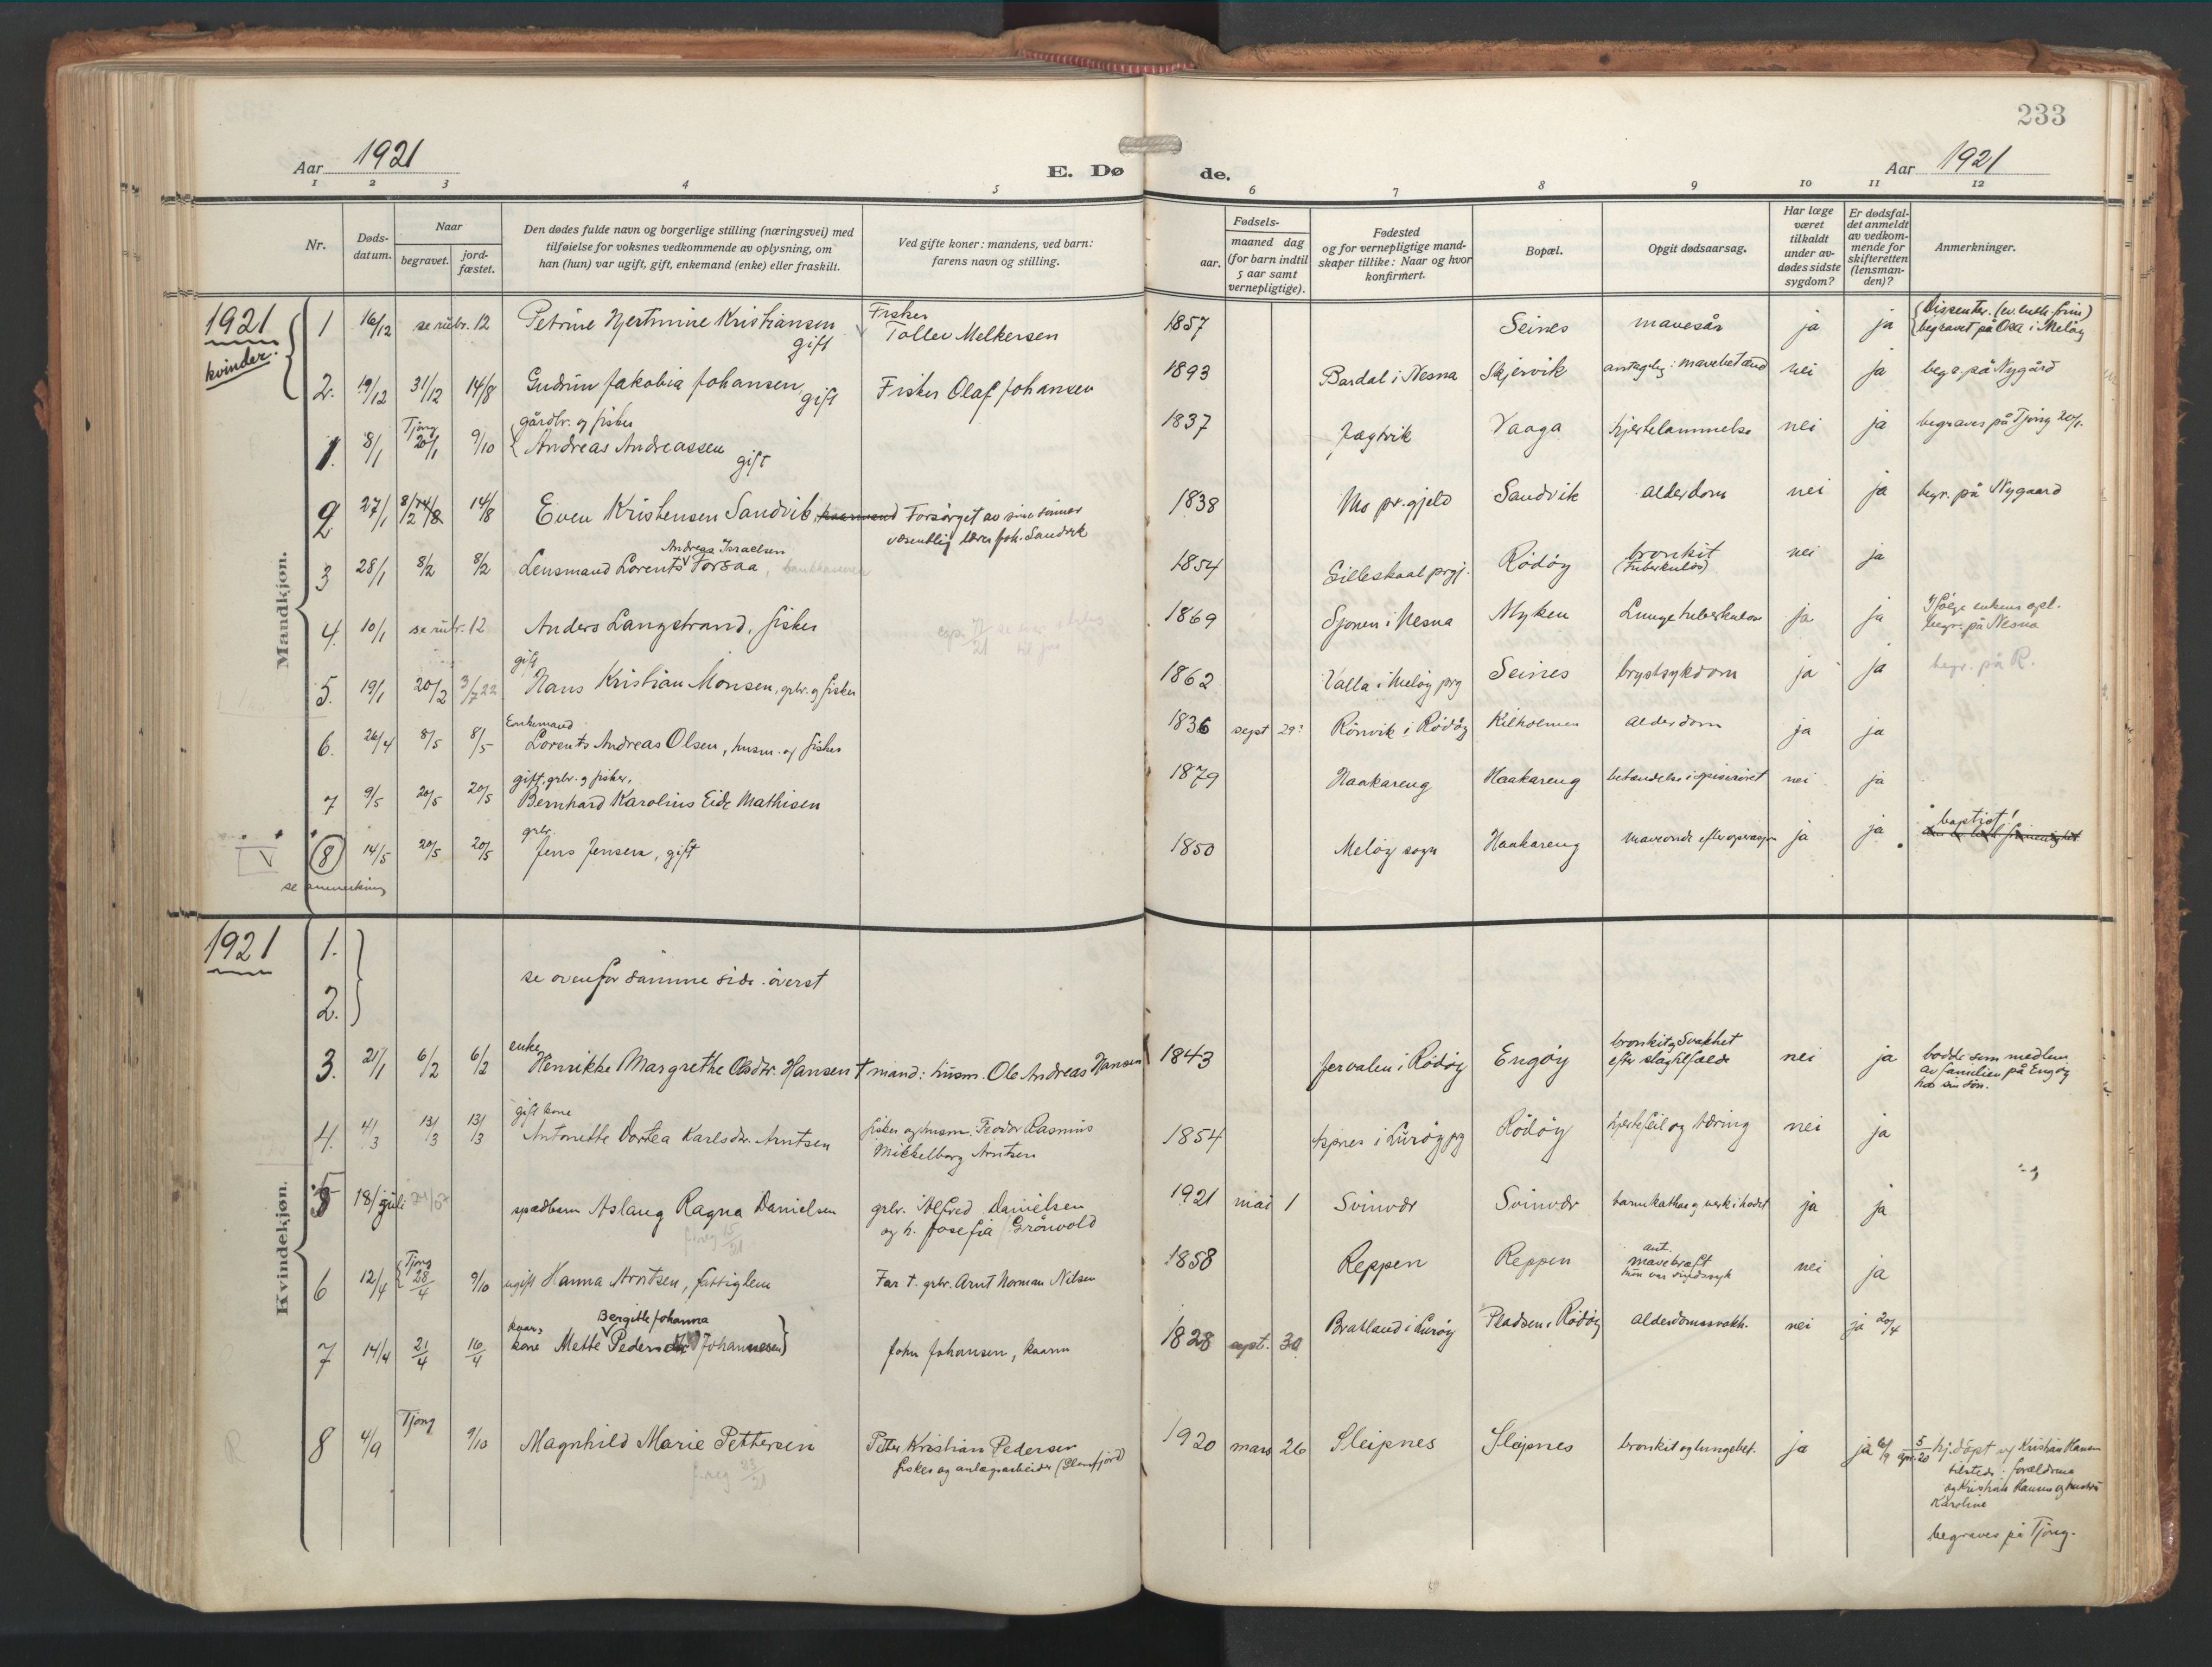 233
Aar 1921
E. Dø
de.
Aar 1921
1 2 3 4 5 6 7 8 9 10 11 12
Nr.
Døds-
datum.
Naar
begravet.
jord-
fæstet.
Den dødes fulde navn og borgerlige stilling (næringsvei) med
tilføielse for voksnes vedkommende av oplysning, om
han (hun) var ugift, gift, enkemand (enke) eller fraskilt.
Ved gifte koner: mandens, ved barn:
farens navn og stilling.
Fødsels-
aar.
maaned dag
(for barn indtil
5 aar samt
vernepligtige).
Fødested
og for vernepligtige mand-
skaper tillike: Naar og hvor
konfirmert.
Bopæl.
Opgit dødsaarsag.
Har læge
været
tilkaldt
under av-
dødes sidste
sygdom?
Er dødsfal-
det anmeldt
av vedkom-
mende for
skifteretten
(lensman-
den)?
Anmerkninger.
1921
kvinder.
1 16/12 se rubr. 12 Petrine Hjertmine Kristiansen
gift
Fisker
Tollev Melkersen
1857 Seines mavesår ja ja
begravet på i Meløy
2. 19/12 31/12 14/8 Gudrun Jakobia Johansen gift Fisker Olaf Johansen 1893 Bardal i Nesna Skjervik nei ja begr. på Nygård
Mandkjøn.
gårdbr. og fisker
1. 8/1 Tjong 20/1 9/10 Andreas Andreassen
gift
1837 Jægtvik Vaaga hjertelammelse nei ja begraves på Tjong 20/1.
2 27/1 8/2 14/8 Even Kristensen Sandvik, Forsørget av sine sønner
væsentlig lærer Joh. Sandvik
1838 prgjeld Sandvik alderdom nei ja begr. på Nygaard
Andreas Israelsen
3 28/1 8/2 8/2 Lensmand Lorents Forsaa, 1854 Gilleskaal prgj. Rödöy bronkit
(tuberkuløs)
nei ja
4. 10/1 se rubr. 12 Anders Langstrand, fisker 1869 Sjonen i Nesna Myken Lungetuberkulose ja ja Ifølge enkens opl.
begr. på Nesna
gift
5. 19/1 20/2 3/7 22 Hans Kristian Monsen, grbr. og fisker 1862 Valla i Meløy prg Seines brystsykdom ja ja begr. på R.
Enkemand
6. 26/4 8/5 8/5 Lorents Andreas Olsen, husm. og fisker 1836 sept 29 Rönvik i Rödöy Kilholmen alderdom ja ja
gift, grbr. og fisker,
7 9/5 20/5 20/5 Bernhard Karolius Eide Mathisen 1879 Haakareng Haakareng betændelse i spiserøret nei ja
grbr.
8 14/5 20/5 20/5 Jens Jensen, gift 1850 Meløy sogn Haakareng maveonde efter operasjon ja ja baptist!
se anmerkning
1921
1.
2.
se ovenfor samme side øverst
Kvindekjøn.
enke
3. 21/1 6/2 6/2 Henrikke Margrethe Olsdtr. Hansen † mand: husm. Ole Andreas Hansen 1843 Jervalen i Rödöy Engöy bronkit og svakhet
efter slagtilfælde
nei ja bodde som medlem
av familien på Engöy
hos sin søn.
gift kone
4. 4/3 13/3 13/3 Antonette Dortea Karlsdtr. Arntsen fisker og husm. Teodor Rasmus
Mikkelborg Arntsen
1854 i Luröy prg Rödöy hjertefeil og tæring nei ja
5 18/juli spædbarn Aslaug Ragna Danielsen grbr. Alfred Danielsen
og h. Josefia Grönvold
1921 mai 1 Svinvær Svinvær ja ja
6 12/4 Tjong 28/4 9/10 ugift Hanna Arntsen, fattiglem Far †. grbr. Arnt Norman Nilsen 1858 Reppen Reppen ant.
mavekræft
hun var sindssyk
nei ja
Bergitte Johanna
7 14/4 21/4 16/4 kone Mette Pedersdtr. (Johannesen) John Johansen, kaarm 1828 sept. 30 Bratland i Luröy Pladsen i Rödöy alderdomssvakh. nei ja 20/4
8 4/9 Tjong 9/10 Magnhild Marie Pettersen Petter Kristian Pedersen
fisker og anlægsarbeider (Glomfjord)
freg 23/21
1920 mars 26 Sleipnes Sleipnes bronkit og lungebet. ja ja 5/apr. 20 hj.døpt av Kristian Hansen
tilstede: forældrene
og Kristian Hansen og hustru
Karoline
begraves på Tjong.